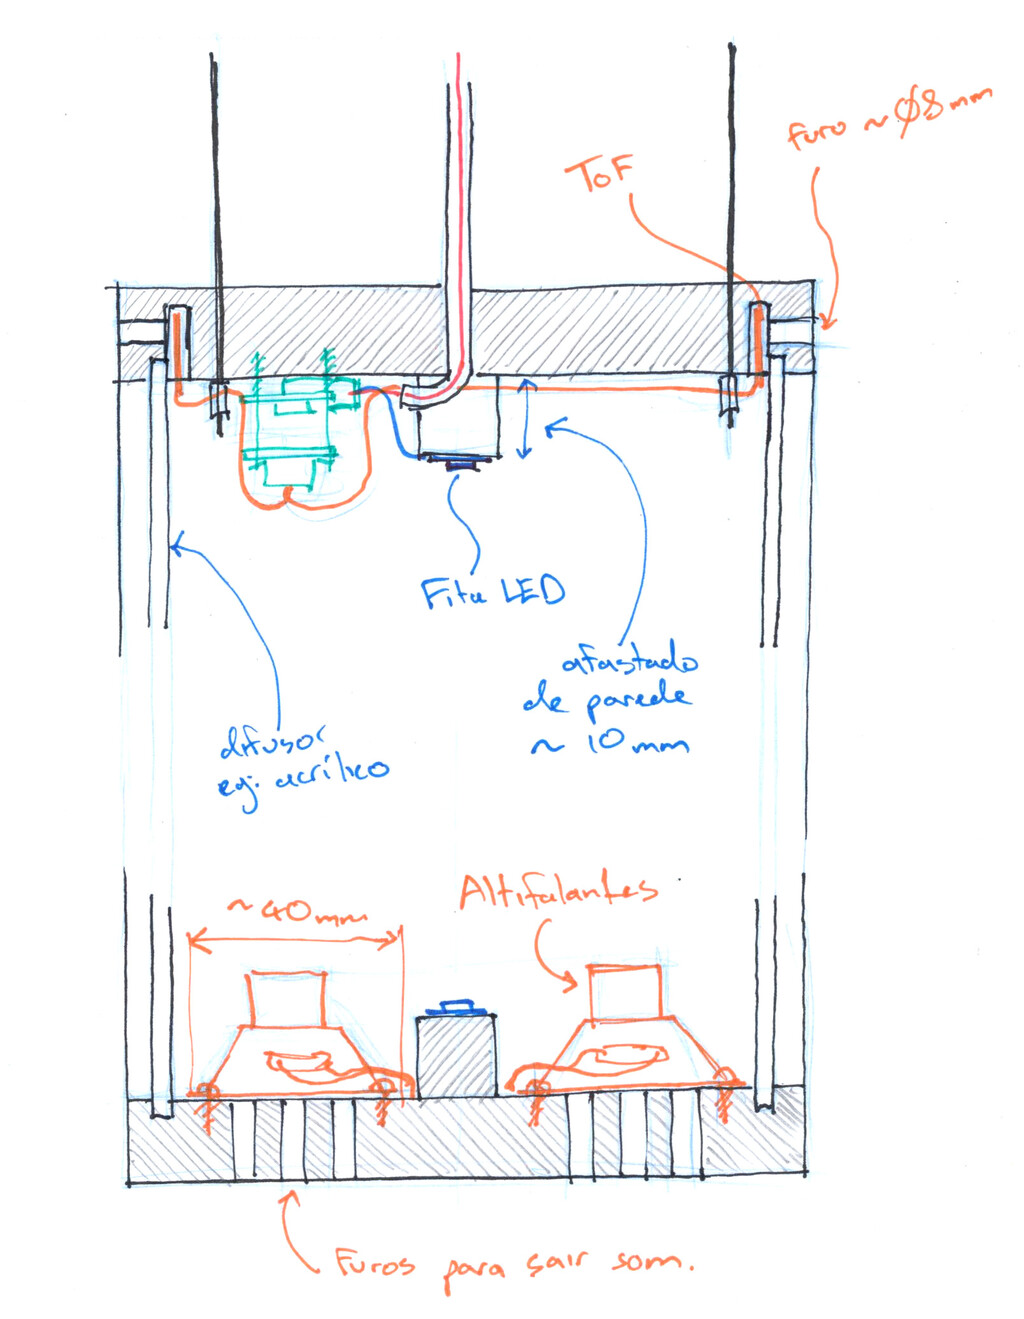 furo ~ Ø8mm
ToF
Fita LED
afastado
de parede
~ 10 mm
difusor
eg. acrílico
~40mm
Altifalantes
Furos para sair som.